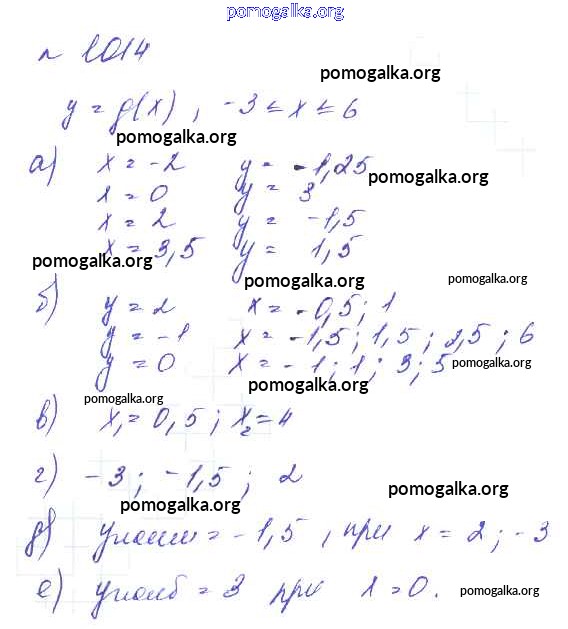 pomogalka.org
№ 1014
pomogalka.org
y = g(x), -3 ≤ x ≤ 6
pomogalka.org
а) x = -2 y = -1,25
pomogalka.org
x = 0 y = 3
x = 2 y = -1,5
x = 3,5 y = 1,5
pomogalka.org
pomogalka.org
pomogalka.org
б) y = 2 x = -0,5; 1
y = -1 x = -1,5; 1,5; 2,5; 6
y = 0 x = -1; 1; 3; 5
pomogalka.org
pomogalka.org
pomogalka.org
в) x₁ = 0,5; x₂ = 4
г) -3; -1,5; 2
pomogalka.org
pomogalka.org
д) yнаим = -1,5, при x = 2; -3
е) yнаиб = 3 при x = 0.
pomogalka.org